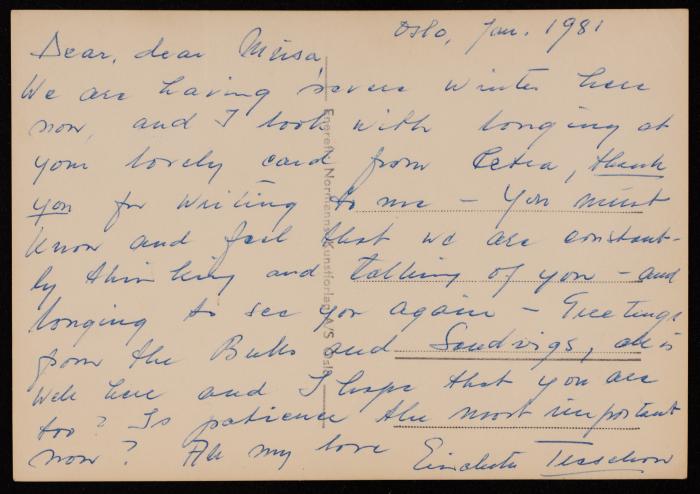 Oslo, Jan. 1981
Dear, dear
We are having severe winter here
now, and I look with longing at
your lovely card from thank
you for writing to me – You must
know and feel that we are constant-
ly thinking and talking of you – and
longing to see you again – Greetings
from the and Sandvigs, all is
well here and I hope that you are
too? Is patience the most important
now? All my love
Enerett: Normanns Kunstforlag A/S Oslo